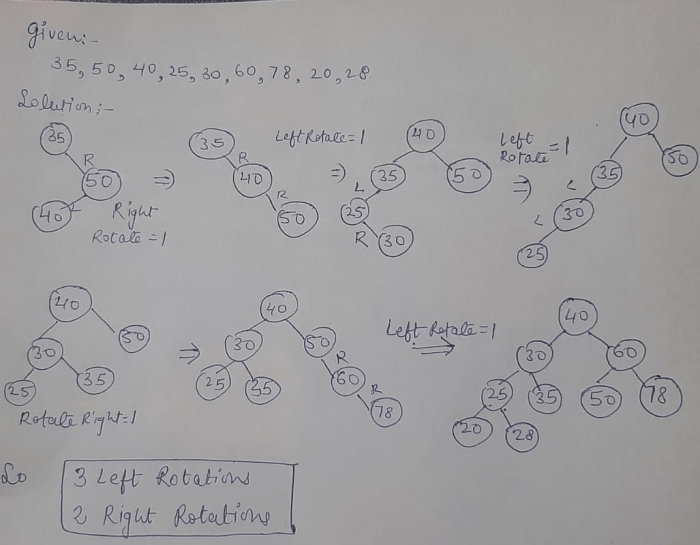 Given:-
35, 50, 40, 25, 30, 60, 78, 20, 28
Solution:-
35
R
50
40 L
Right
Rotate = 1
⇒
35
R
40
R
50
Left Rotate = 1
⇒
40
35 50
L
25
R 30
Left
Rotate = 1
⇒
40
50
35
L
30
L
25
40
50
30
25 35
Rotate Right = 1
⇒
40
30 50
R
25 35 60
R
78
Left Rotate = 1
40
30 60
25 35 50 78
20 28
So
3 Left Rotations
2 Right Rotations